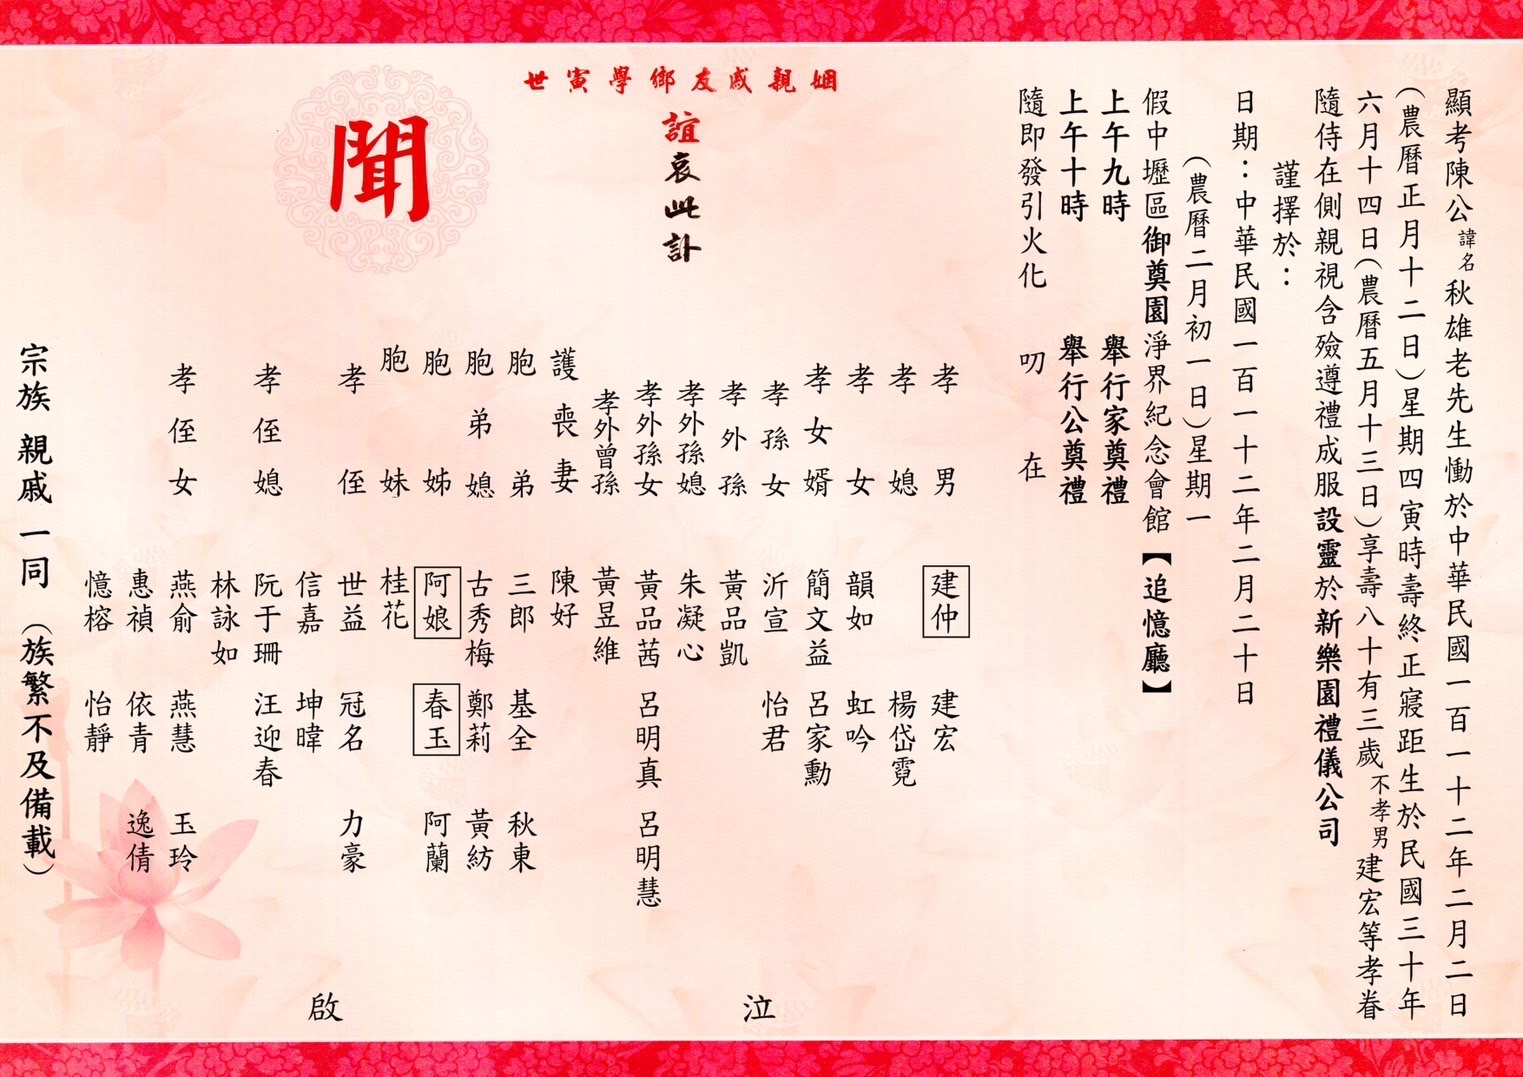 顯考陳公諱名秋雄老先生慟於中華民國一百一十二年二月二日
（農曆正月十二日）星期四寅時壽終正寢距生於民國三十年
六月十四日（農曆五月十三日）享壽八十有三歲不孝男建宏等孝眷
隨侍在側親視含殮遵禮成服設靈於新樂園禮儀公司
謹擇於：
日期：中華民國一百一十二年二月二十日
（農曆二月初一日）星期一
假中壢區御奠園淨界紀念會館【追憶廳】
上午九時 舉行家奠禮
上午十時 舉行公奠禮
隨即發引火化 叨在
姻親戚友鄉學寅世
誼哀此訃
聞
孝男 建仲 建宏
孝媳 楊岱霓
孝女 韻如 虹吟
孝女婿 簡文益 呂家勳
孝孫女 沂宣 怡君
孝外孫 黃品凱
孝外孫媳 朱凝心
孝外孫女 黃品茜 呂明真 呂明慧
孝外曾孫 黃昱維
護喪妻 陳好
胞弟 三郎 基全 秋東
胞弟媳 古秀梅 鄭莉 黃紡
胞姊 阿娘 春玉 阿蘭
胞妹 桂花
孝侄 世益 冠名 力豪
信嘉 坤暐
孝侄媳 阮于珊 汪迎春
林詠如
孝侄女 燕俞 燕慧 玉玲
惠禎 依青 逸倩
憶榕 怡靜
泣啟
宗族親戚一同（族繁不及備載）